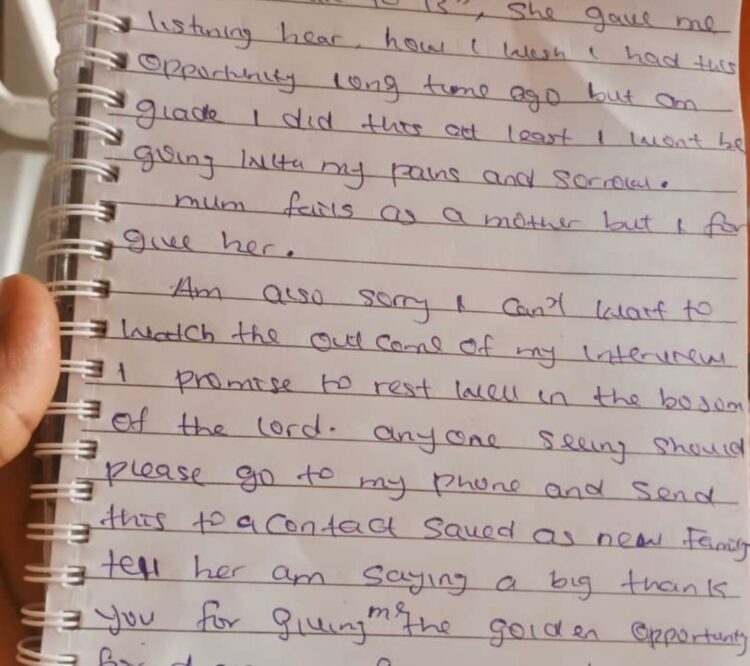 she gave me
listining hear, how I wish I had this
opportunity long time ago but am
glade I did this att least I wont be
going with my pains and sorrow.
mum fails as a mother but I for
give her.
Am also sorry I can't wait to
watch the out come of my interview
I promise to rest well in the bosom
of the lord. anyone seeing should
please go to my phone and send
this to a contact saved as new family
tell her am saying a big thank
you for giving me the golden opportunity